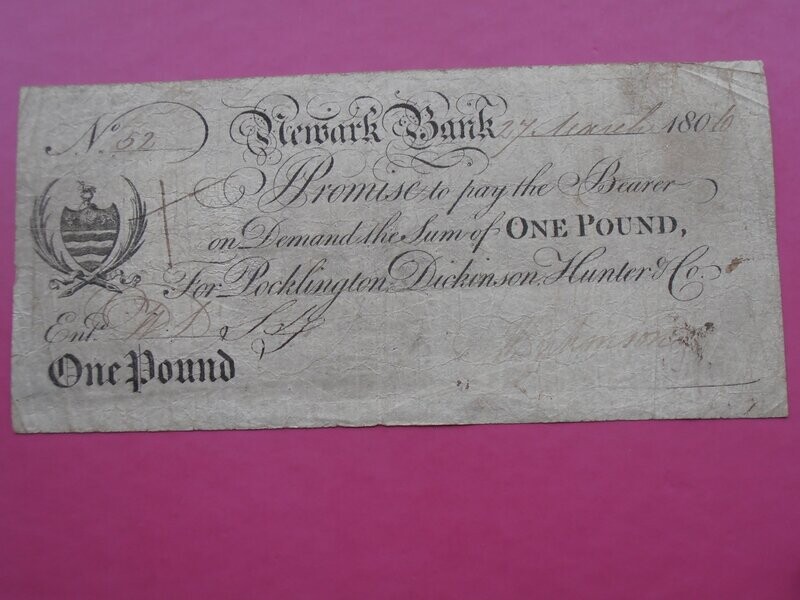 No. 52 Newark Bank 27 March 1806
I Promise to pay the Bearer
on Demand the Sum of ONE POUND,
For Pocklington Dickinson Hunter & Co.
Entd.
One Pound